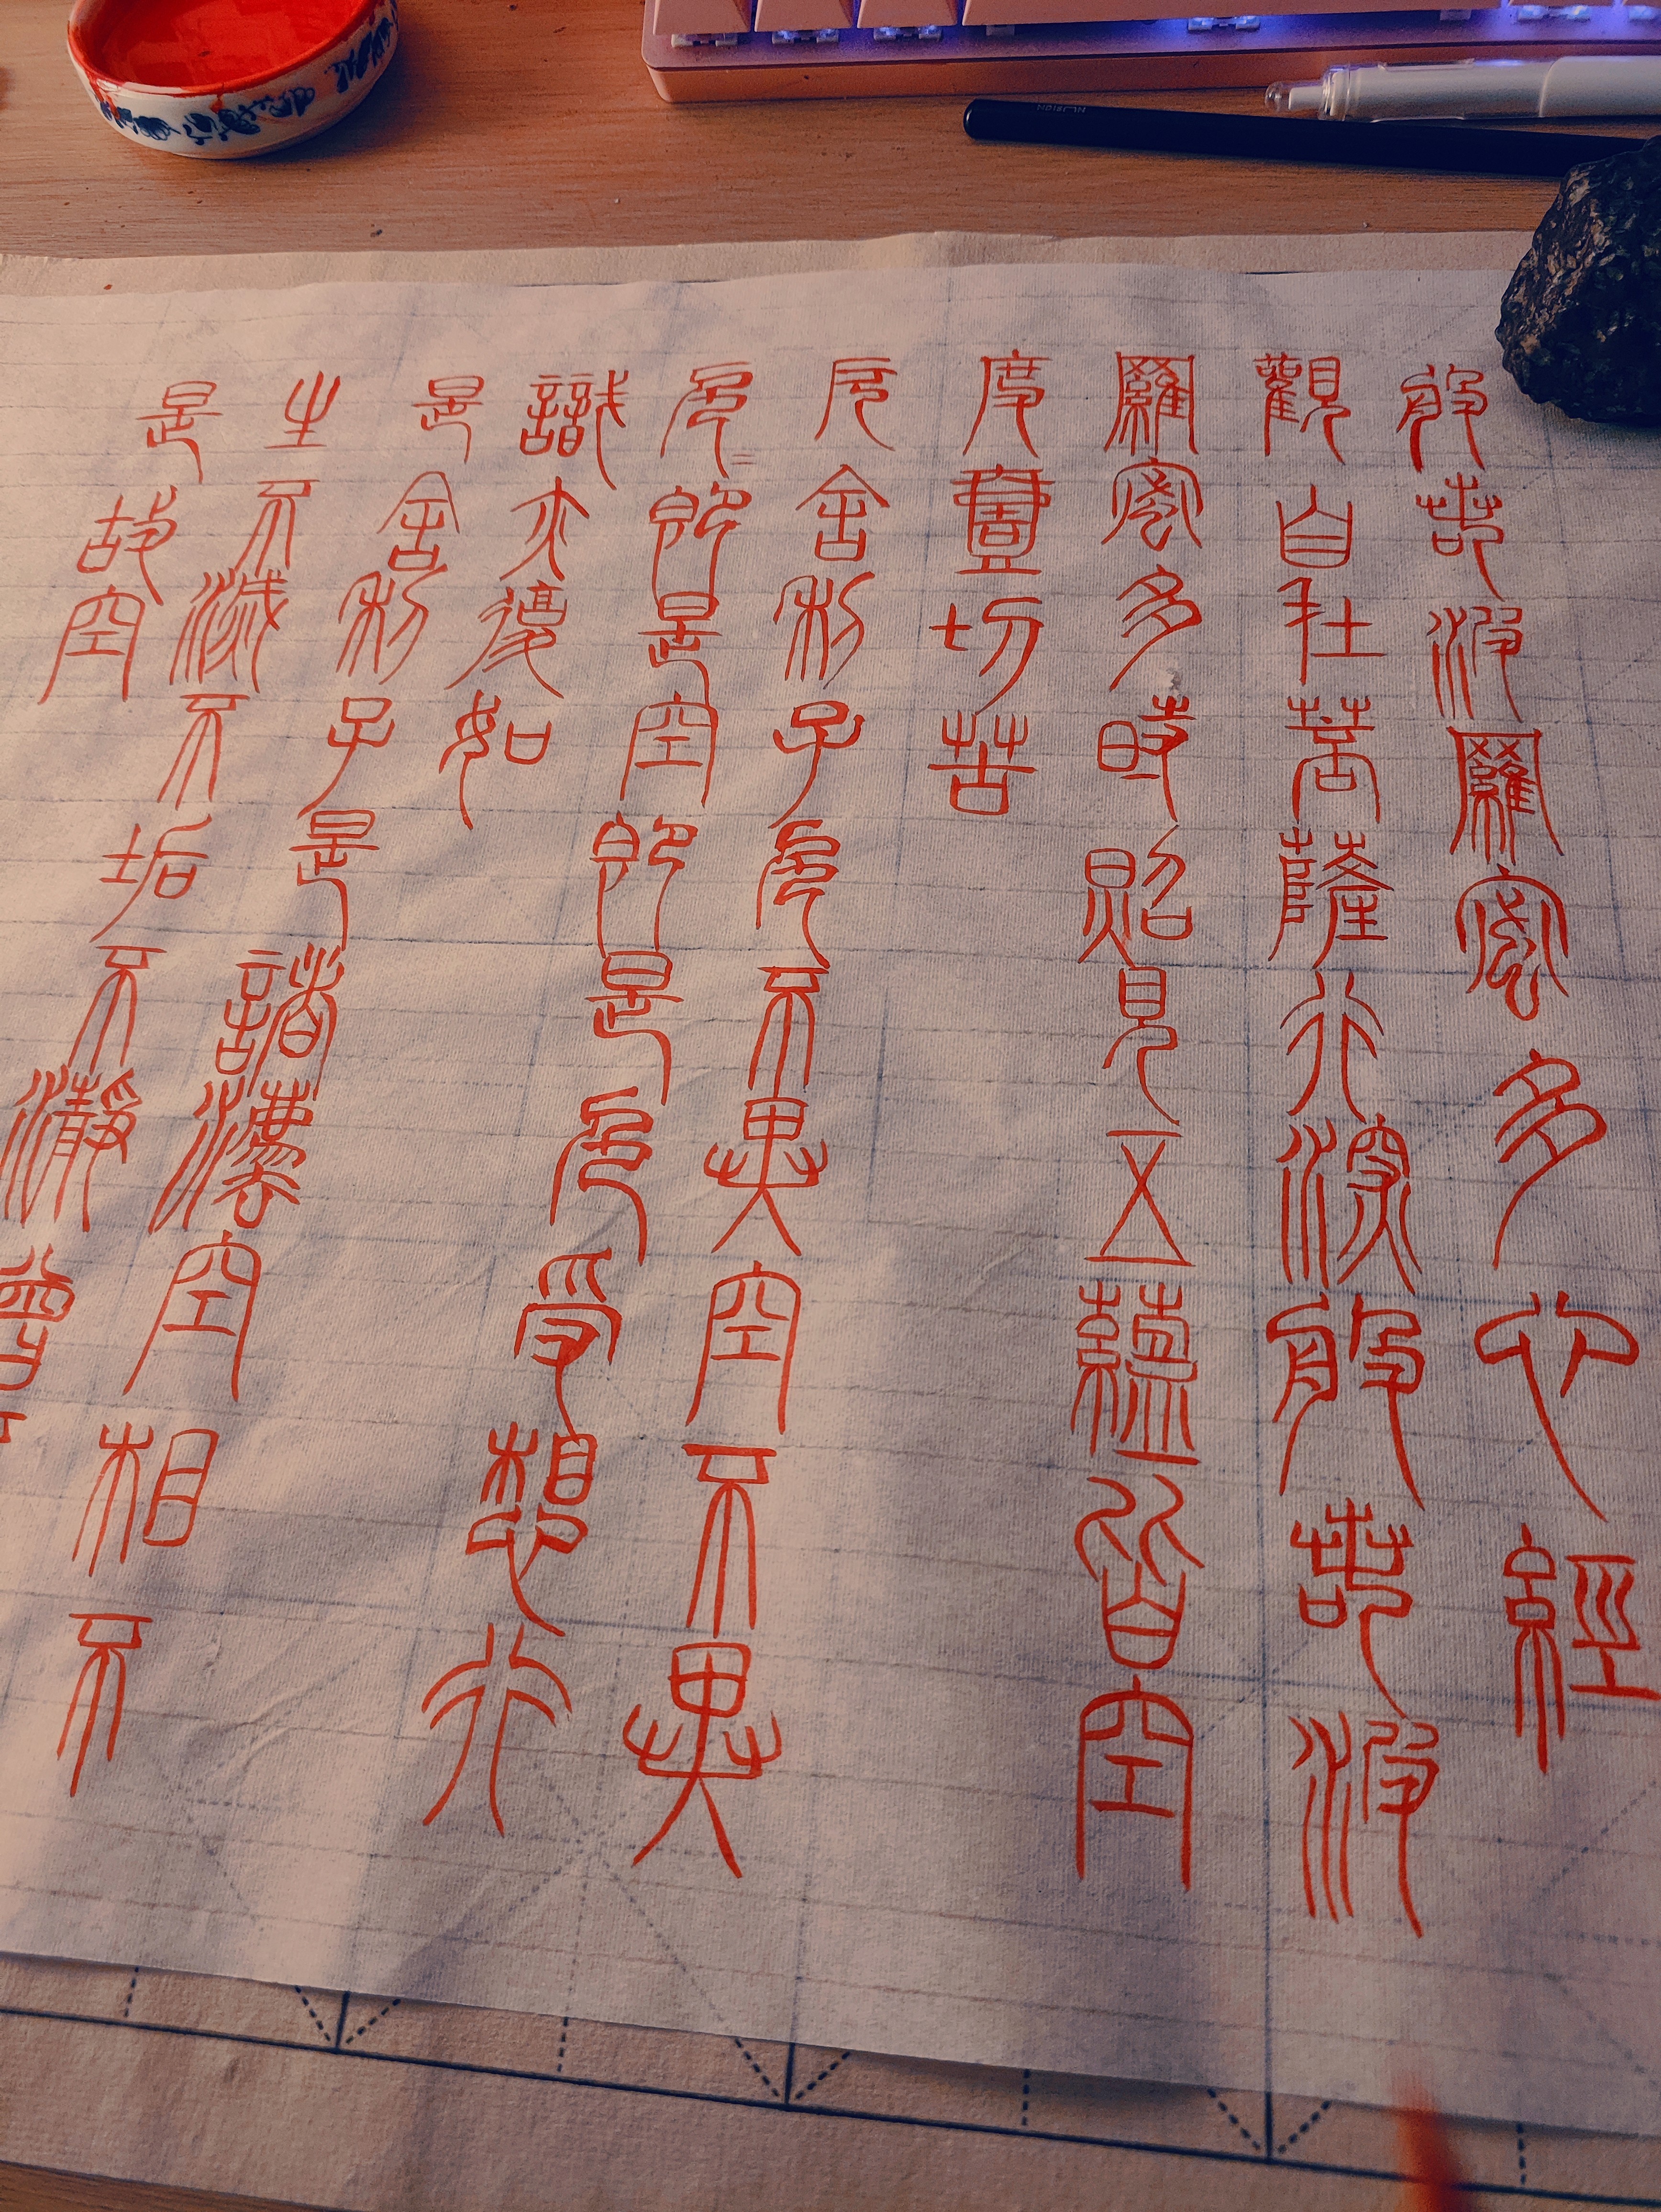 般若波羅蜜多心經
觀自在菩薩行深般若波
羅蜜多時照見五蘊皆空
度壹切苦
厄舍利子色不異空不異
色=即是空即是色受想行
識亦復如
是舍利子是諸灋空相不
生不滅不垢不瀞曾
是故空